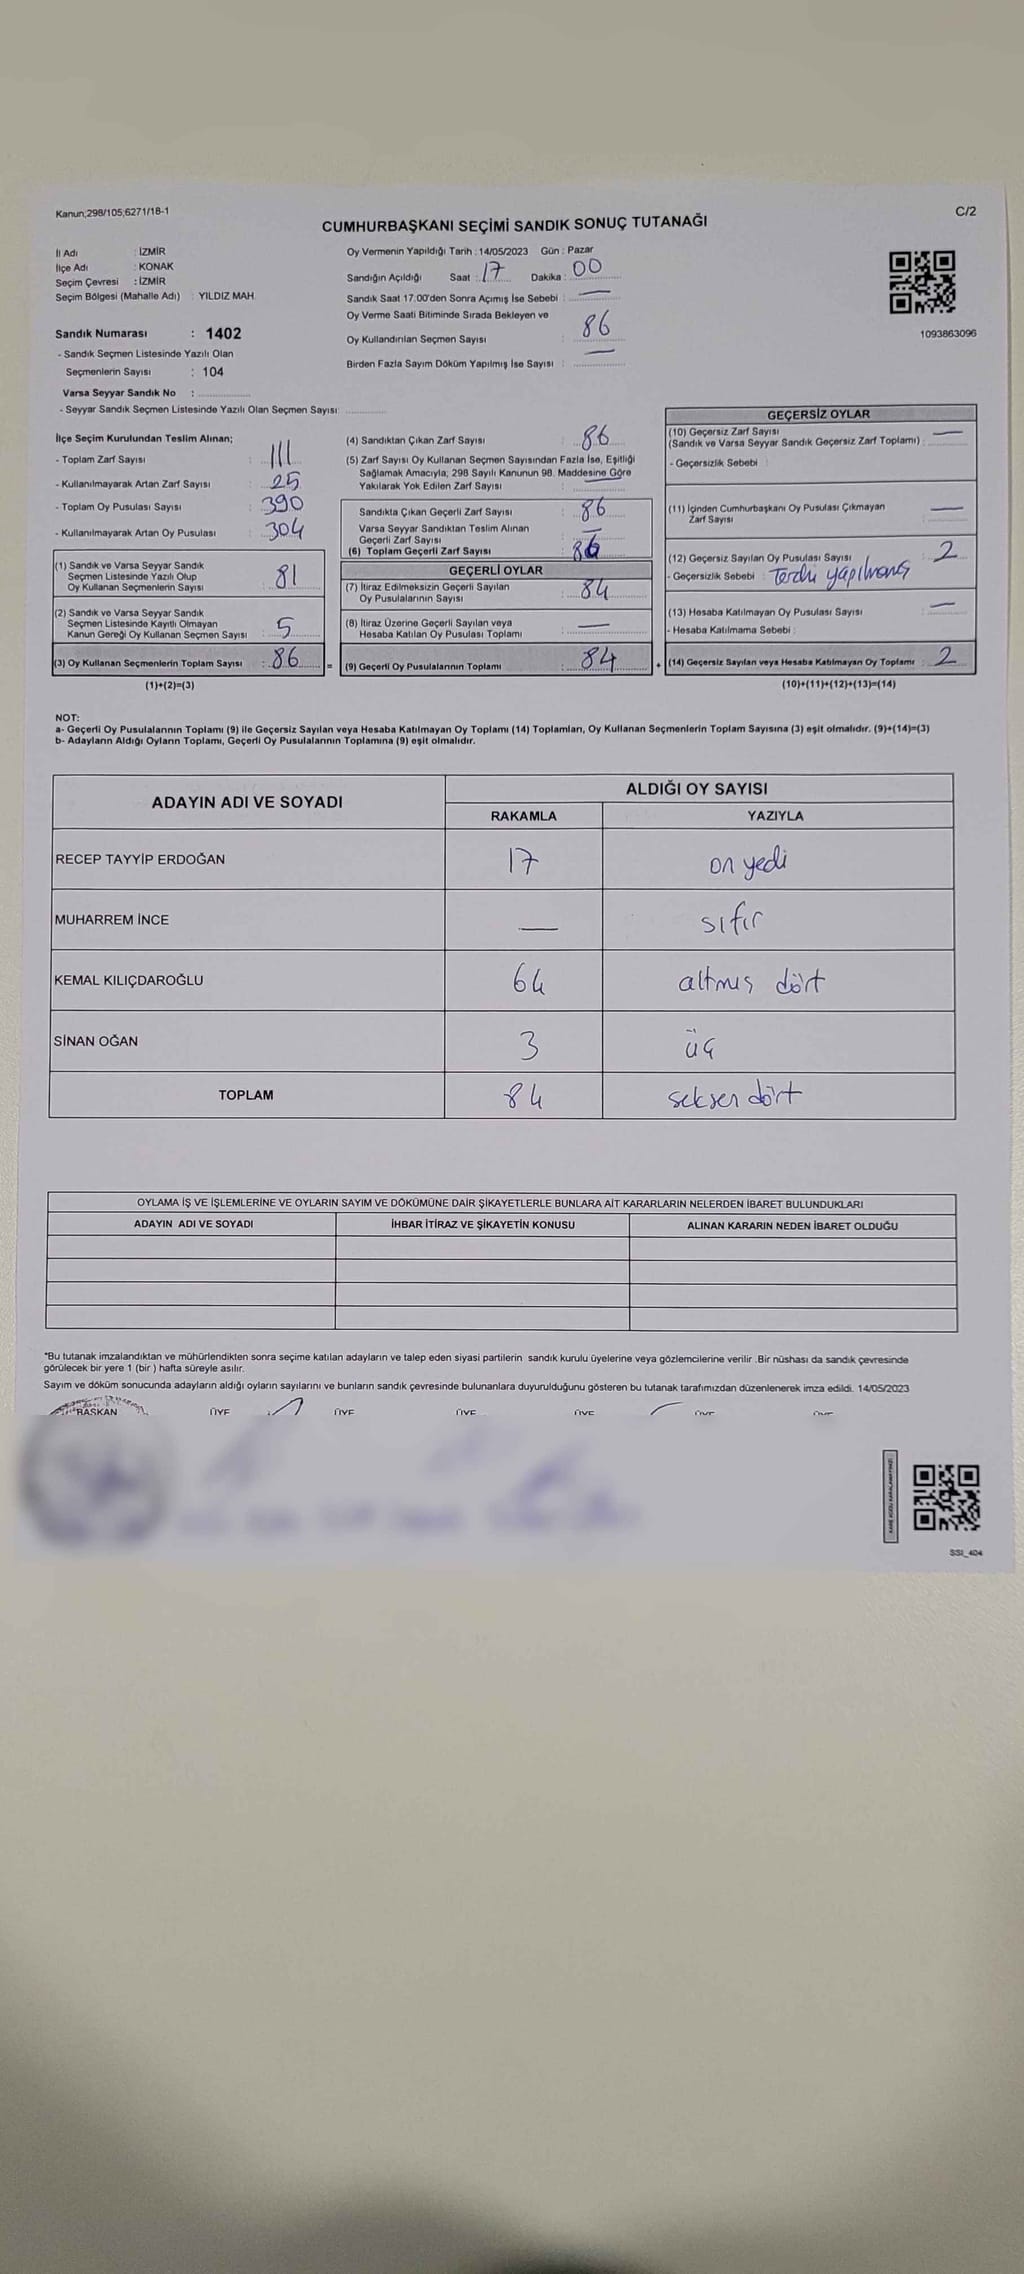 Kanun;298/105,6271/18-1
C/2
CUMHURBAŞKANI SEÇİMİ SANDIK SONUÇ TUTANAĞI
İl Adı : İZMİR
İlçe Adı : KONAK
Seçim Çevresi : İZMİR
Seçim Bölgesi (Mahalle Adı) : YILDIZ MAH.
Sandık Numarası : 1402
- Sandık Seçmen Listesinde Yazılı Olan
Seçmenlerin Sayısı : 104
Varsa Seyyar Sandık No :
- Seyyar Sandık Seçmen Listesinde Yazılı Olan Seçmen Sayısı:
Oy Vermenin Yapıldığı Tarih : 14/05/2023 Gün : Pazar
Sandığın Açıldığı Saat : 17 Dakika : 00
Sandık Saat 17:00'den Sonra Açımış İse Sebebi : —
Oy Verme Saati Bitiminde Sırada Bekleyen ve
Oy Kullandırılan Seçmen Sayısı : 86
Birden Fazla Sayım Döküm Yapılmış İse Sayısı : —
1093863096
İlçe Seçim Kurulundan Teslim Alınan;
- Toplam Zarf Sayısı : 111
- Kullanılmayarak Artan Zarf Sayısı : 25
- Toplam Oy Pusulası Sayısı : 390
- Kullanılmayarak Artan Oy Pusulası : 304
(1) Sandık ve Varsa Seyyar Sandık
Seçmen Listesinde Yazılı Olup
Oy Kullanan Seçmenlerin Sayısı : 81
(2) Sandık ve Varsa Seyyar Sandık
Seçmen Listesinde Kayıtlı Olmayan
Kanun Gereği Oy Kullanan Seçmen Sayısı : 5
(3) Oy Kullanan Seçmenlerin Toplam Sayısı : 86
(1)+(2)=(3)
(4) Sandıktan Çıkan Zarf Sayısı : 86
(5) Zarf Sayısı Oy Kullanan Seçmen Sayısından Fazla İse, Eşitliği
Sağlamak Amacıyla; 298 Sayılı Kanunun 98. Maddesine Göre
Yakılarak Yok Edilen Zarf Sayısı : —
Sandıkta Çıkan Geçerli Zarf Sayısı : 86
Varsa Seyyar Sandıktan Teslim Alınan
Geçerli Zarf Sayısı : —
(6) Toplam Geçerli Zarf Sayısı : 86
GEÇERLİ OYLAR
(7) İtiraz Edilmeksizin Geçerli Sayılan
Oy Pusulalarının Sayısı : 84
(8) İtiraz Üzerine Geçerli Sayılan veya
Hesaba Katılan Oy Pusulası Toplamı : —
= (9) Geçerli Oy Pusulalarının Toplamı : 84
GEÇERSİZ OYLAR
(10) Geçersiz Zarf Sayısı
(Sandık ve Varsa Seyyar Sandık Geçersiz Zarf Toplamı) : —
- Geçersizlik Sebebi :
(11) İçinden Cumhurbaşkanı Oy Pusulası Çıkmayan
Zarf Sayısı : —
(12) Geçersiz Sayılan Oy Pusulası Sayısı : 2
- Geçersizlik Sebebi : Tercih yapılmamış
(13) Hesaba Katılmayan Oy Pusulası Sayısı : —
- Hesaba Katılmama Sebebi :
+ (14) Geçersiz Sayılan veya Hesaba Katılmayan Oy Toplamı : 2
(10)+(11)+(12)+(13)=(14)
NOT:
a- Geçerli Oy Pusulalarının Toplamı (9) ile Geçersiz Sayılan veya Hesaba Katılmayan Oy Toplamı (14) Toplamları, Oy Kullanan Seçmenlerin Toplam Sayısına (3) eşit olmalıdır. (9)+(14)=(3)
b- Adayların Aldığı Oyların Toplamı, Geçerli Oy Pusulalarının Toplamına (9) eşit olmalıdır.
ADAYIN ADI VE SOYADI ALDIĞI OY SAYISI
RAKAMLA YAZIYLA
RECEP TAYYİP ERDOĞAN 17 on yedi
MUHARREM İNCE — sıfır
KEMAL KILIÇDAROĞLU 64 altmış dört
SİNAN OĞAN 3 üç
TOPLAM 84 seksen dört
OYLAMA İŞ VE İŞLEMLERİNE VE OYLARIN SAYIM VE DÖKÜMÜNE DAİR ŞİKAYETLERLE BUNLARA AİT KARARLARIN NELERDEN İBARET BULUNDUKLARI
ADAYIN ADI VE SOYADI İHBAR İTİRAZ VE ŞİKAYETİN KONUSU ALINAN KARARIN NEDEN İBARET OLDUĞU
*Bu tutanak imzalandıktan ve mühürlendikten sonra seçime katılan adayların ve talep eden siyasi partilerin sandık kurulu üyelerine veya gözlemcilerine verilir .Bir nüshası da sandık çevresinde
görülecek bir yere 1 (bir ) hafta süreyle asılır.
Sayım ve döküm sonucunda adayların aldığı oyların sayılarını ve bunların sandık çevresinde bulunanlara duyurulduğunu gösteren bu tutanak tarafımızdan düzenlenerek imza edildi. 14/05/2023
BAŞKAN ÜYE ÜYE ÜYE ÜYE ÜYE ÜYE
SSI_404